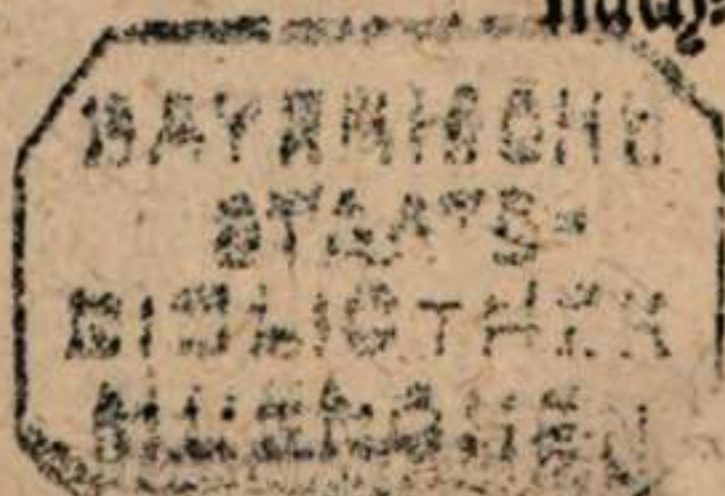 nach-
BAYERISCHE
STAATS-
BIBLIOTHEK
MUENCHEN